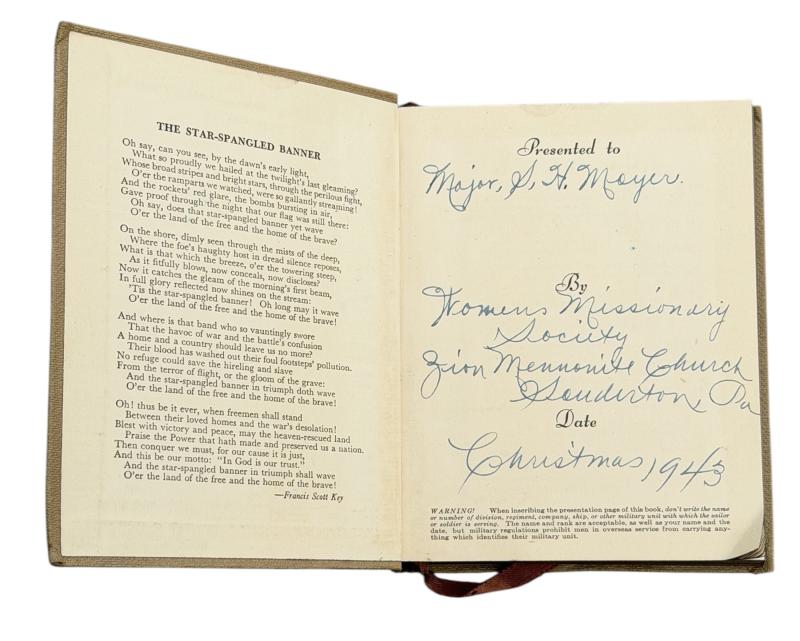 THE STAR-SPANGLED BANNER
Oh say, can you see, by the dawn's early light,
What so proudly we hailed at the twilight's last gleaming?
Whose broad stripes and bright stars, through the perilous fight,
O'er the ramparts we watched, were so gallantly streaming!
And the rockets' red glare, the bombs bursting in air,
Gave proof through the night that our flag was still there:
Oh say, does that star-spangled banner yet wave
O'er the land of the free and the home of the brave?
On the shore, dimly seen through the mists of the deep,
Where the foe's haughty host in dread silence reposes,
What is that which the breeze, o'er the towering steep,
As it fitfully blows, now conceals, now discloses?
Now it catches the gleam of the morning's first beam,
In full glory reflected now shines on the stream:
'Tis the star-spangled banner! Oh long may it wave
O'er the land of the free and the home of the brave!
And where is that band who so vauntingly swore
That the havoc of war and the battle's confusion
A home and a country should leave us no more?
Their blood has washed out their foul footsteps' pollution.
No refuge could save the hireling and slave
From the terror of flight, or the gloom of the grave:
And the star-spangled banner in triumph doth wave
O'er the land of the free and the home of the brave!
Oh! thus be it ever, when freemen shall stand
Between their loved homes and the war's desolation!
Blest with victory and peace, may the heaven-rescued land
Praise the Power that hath made and preserved us a nation.
Then conquer we must, for our cause it is just,
And this be our motto: "In God is our trust."
And the star-spangled banner in triumph shall wave
O'er the land of the free and the home of the brave!
—Francis Scott Key
Presented to
Major, S. H. Moyer.
By
Womens Missionary
Society
Zion Mennonite Church
Souderton, Pa
Date
Christmas, 1943
WARNING! When inscribing the presentation page of this book, don't write the name
or number of division, regiment, company, ship, or other military unit with which the sailor
or soldier is serving. The name and rank are acceptable, as well as your name and the
date, but military regulations prohibit men in overseas service from carrying any-
thing which identifies their military unit.